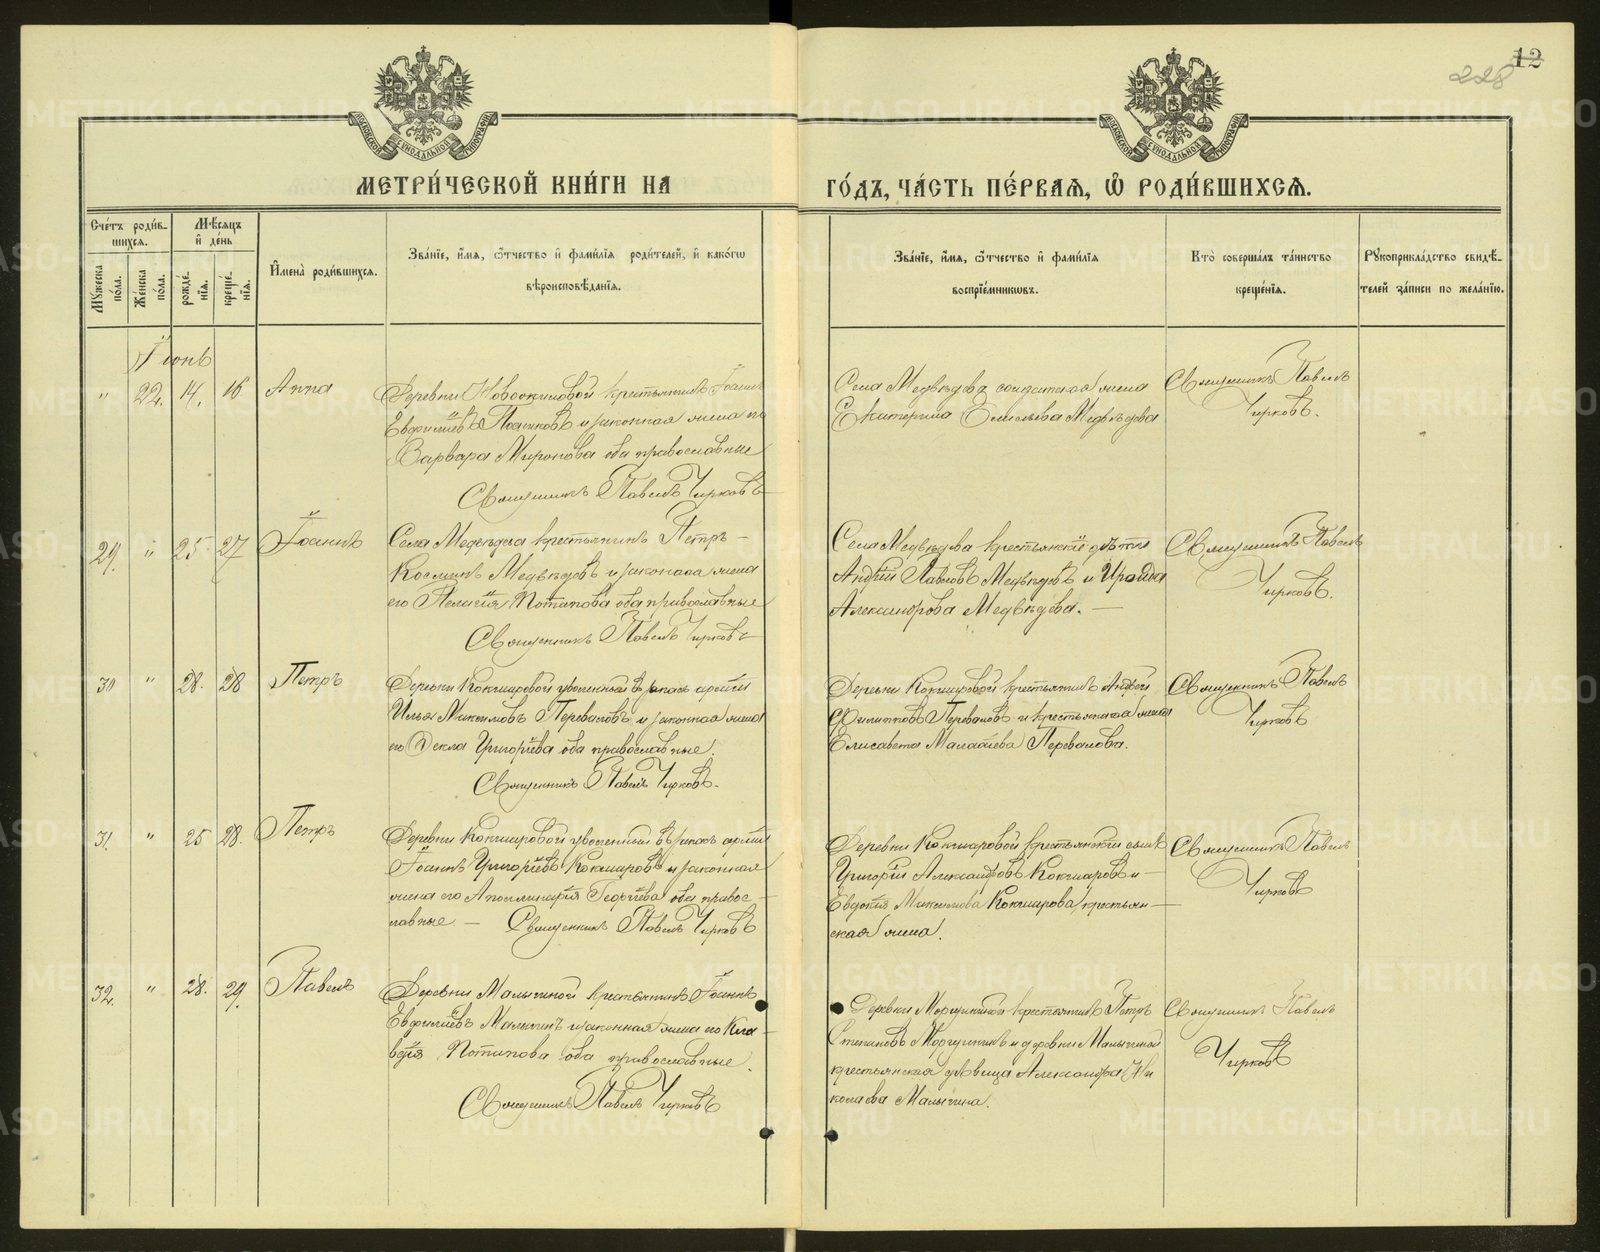 12
228
МОСКОВСКОЙ СѴНОДАЛЬНОЙ ТИПОГРАФІИ
МОСКОВСКОЙ СѴНОДАЛЬНОЙ ТИПОГРАФІИ
МЕТРИ́ЧЕСКОЙ КНИ́ГИ НА
ГО́ДЪ, ЧА́СТЬ ПЕ́РВАѦ, Ѽ РОДИ́ВШИХСѦ.
Сче́тъ роди́в-
шихсѧ.
Мѣ́сѧцъ
и҆ де́нь
Мꙋжеска по́ла.
Же́нска по́ла.
рожде́-нїѧ.
креще́-нїѧ.
И҆мена̀ роди́вшихсѧ.
Зва́нїе, и҆́мѧ, ѻ҆́тчество и҆ фами́лїѧ роди́телей, и҆ како́гѡ
вѣроисповѣ́данїѧ.
Зва́нїе, и҆́мѧ, ѻ҆́тчество и҆ фами́лїѧ
воспрїе́мникѡвъ.
Кто̀ соверша́лъ та́инство
креще́нїѧ.
Рꙋкоприкла́дство свидѣ́-
телей за́писи по жела́нїю.
Іюнь
" 22. 14. 16 Анна
Деревни крестьянинъ Іоаннъ
Евфиміевъ и законная жена его
Варвара Миронова оба православные
Священникъ Павелъ Чирковъ
Села Медвѣдева солдатская жена
Екатерина Емельева Медвѣдева
Священникъ Павелъ
Чирковъ.
29. " 25 27 Іоаннъ
Села Медвѣдева крестьянинъ Петръ
Косминъ Медвѣдевъ и законная жена
его Пелагія Потапова оба православные
Священникъ Павелъ Чирковъ
Села Медвѣдева крестьянскіе дѣти
Андрей Павловъ Медвѣдевъ и Ираида
Александрова Медвѣдева. —
Священникъ Павелъ
Чирковъ.
30 " 28. 28 Петръ
Деревни Кокшаровой уволенный въ запасъ арміи
Илья Максимовъ Переваловъ и законная жена
его Ѳекла Григоріева оба православные.
Священникъ Павелъ Чирковъ.
Деревни Кокшаровой крестьянинъ Андрей
Филипповъ Переваловъ и крестьянская жена
Елисавета Перевалова.
Священникъ Павелъ
Чирковъ
31. " 25 28. Петръ
Деревни Кокшаровой уволенный въ запасъ арміи
Іоаннъ Григоріевъ Кокшаровъ и законная
жена его Аполлинарія Георгіева оба правос-
лавные — Священникъ Павелъ Чирковъ
Деревни Кокшаровой крестьянскій сынъ
Григорій Александровъ Кокшаровъ и —
Евдокія Максимова Кокшарова, крестьян-
ская жена.
Священникъ Павелъ
Чирковъ
32. " 28. 29. Павелъ
Деревни Малыгиной крестьянинъ Іоаннъ
Евфиміевъ Малыгинъ и законная жена его Кла-
вдія Потапова оба православные.
Священникъ Павелъ Чирковъ
Деревни Моргуниной крестьянинъ Петръ
Степановъ Моргунинъ и деревни Малыгиной
крестьянская дѣвица Александра Ни
колаева Малыгина.
Священникъ Павелъ
Чирковъ
METRIKI.GASO-URAL.RU